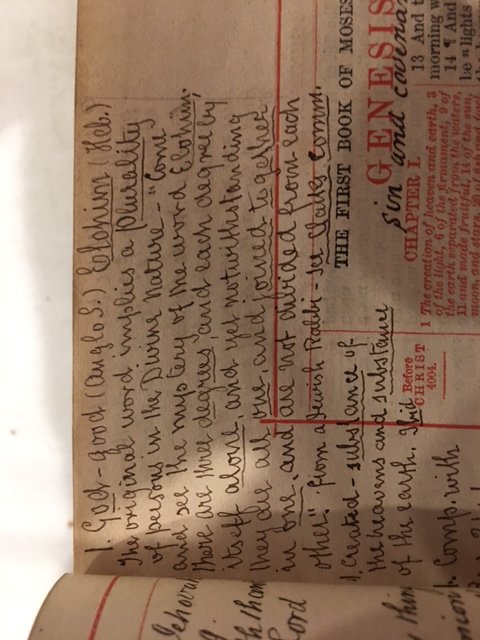 1. God - good (Anglo S.) Elohim (Heb.)
The original word implies a plurality
of persons in the Divine Nature - "Come
and see the mystery of the word Elohim;
there are three degrees, and each degree by
itself alone, and yet notwithstanding
they are all one, and joined together
in one, and are not divided from each
other." from a Jewish Rabbi - see Clarks Comm.
1 Created - substance of
the heavens and substance
of the earth. Ibid
Comp. with
THE FIRST BOOK OF MOSES
GENESIS
Sin and covenan
CHAPTER I.
1 The creation of heaven and earth, 3
of the light, 6 of the firmament, 9 of
the earth separated from the waters,
11 and made fruitful, 14 of the sun,
moon, and stars, 20 of fish and fowl
Before
CHRIST
4004.
13 And t
morning w
14 ¶ And
be n lights
Jehovah
ord